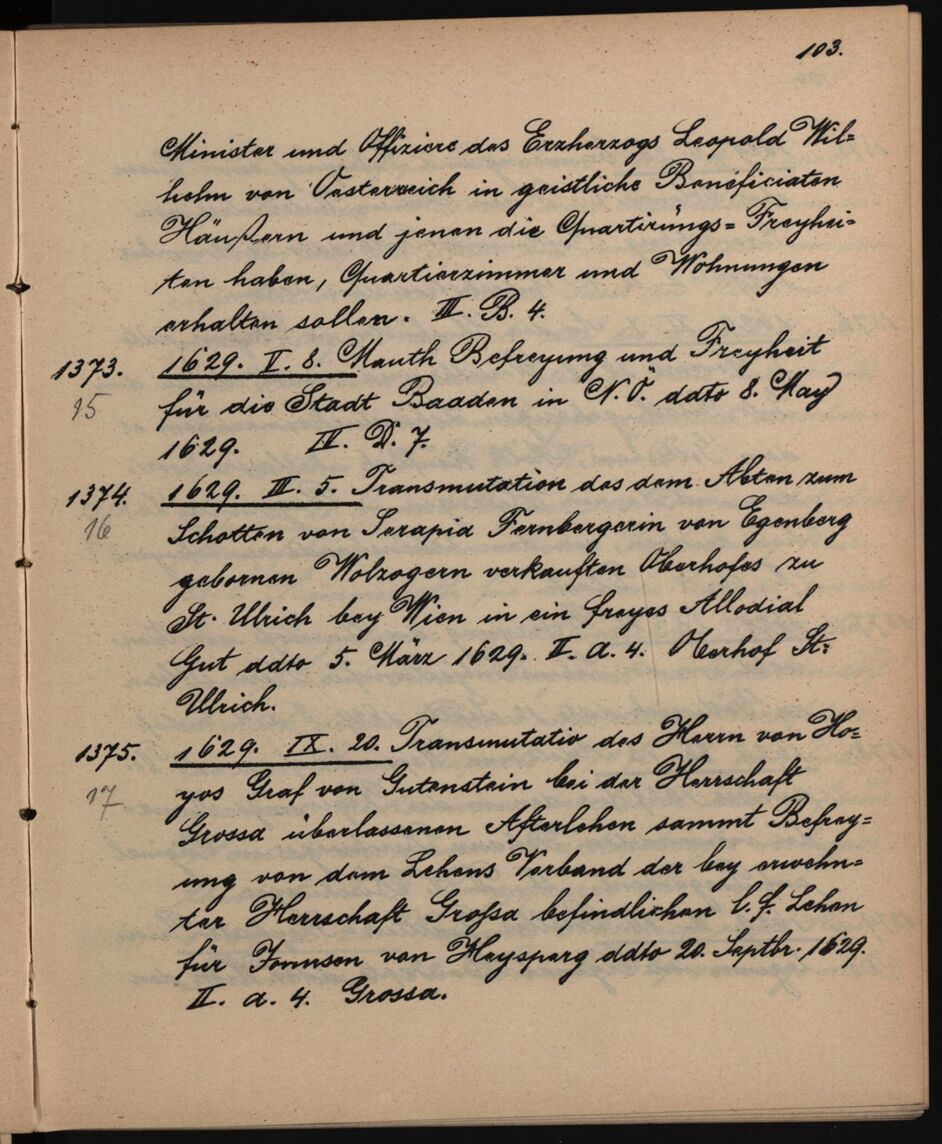 103.
Minister und Offiziere des Erzherzogs Leopold Wil=
helm von Oesterreich in geistliche Beneficiaten
Häußern und jenen die Quartirungs= Freyhei=
ten haben, Quartierzimmer und Wohnungen
erhalten sollen. III. B. 4.
1373. 1629. V. 8. Mauth Befreyung und Freyheit
15 für die Stadt Baaden in N.Ö. ddto 8. May
1629. IV. D. 7.
1374. 1629. III. 5. Transmutation des dem Abten zum
16 Schotten von Serapia Fernbergerin von Egenberg
gebornen Wolzogern verkauften Oberhofes zu
St. Ulrich bey Wien in ein freyes Allodial
Gut ddto 5. März 1629. II. a. 4. Oberhof St:
Ulrich.
1375. 1629. IX. 20. Transmutatio des Herrn von Ho=
17 yos Graf von Gutenstein bei der Herrschaft
Grossa überlassenen Afterlehen sammt Befrey=
ung von dem Lehens Verband der bey erwehn=
ter Herrschaft Großa befindlichen l. f. Lehen
für von Heysparg ddto 20. Septbr. 1629.
II. a. 4. Grossa.